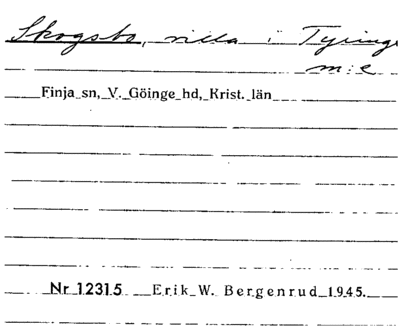 Skogsbo, villa i Tyringe
m:e
Finja sn, V. Göinge hd, Krist. län
Nr 12315 Erik W. Bergenrud 1945.